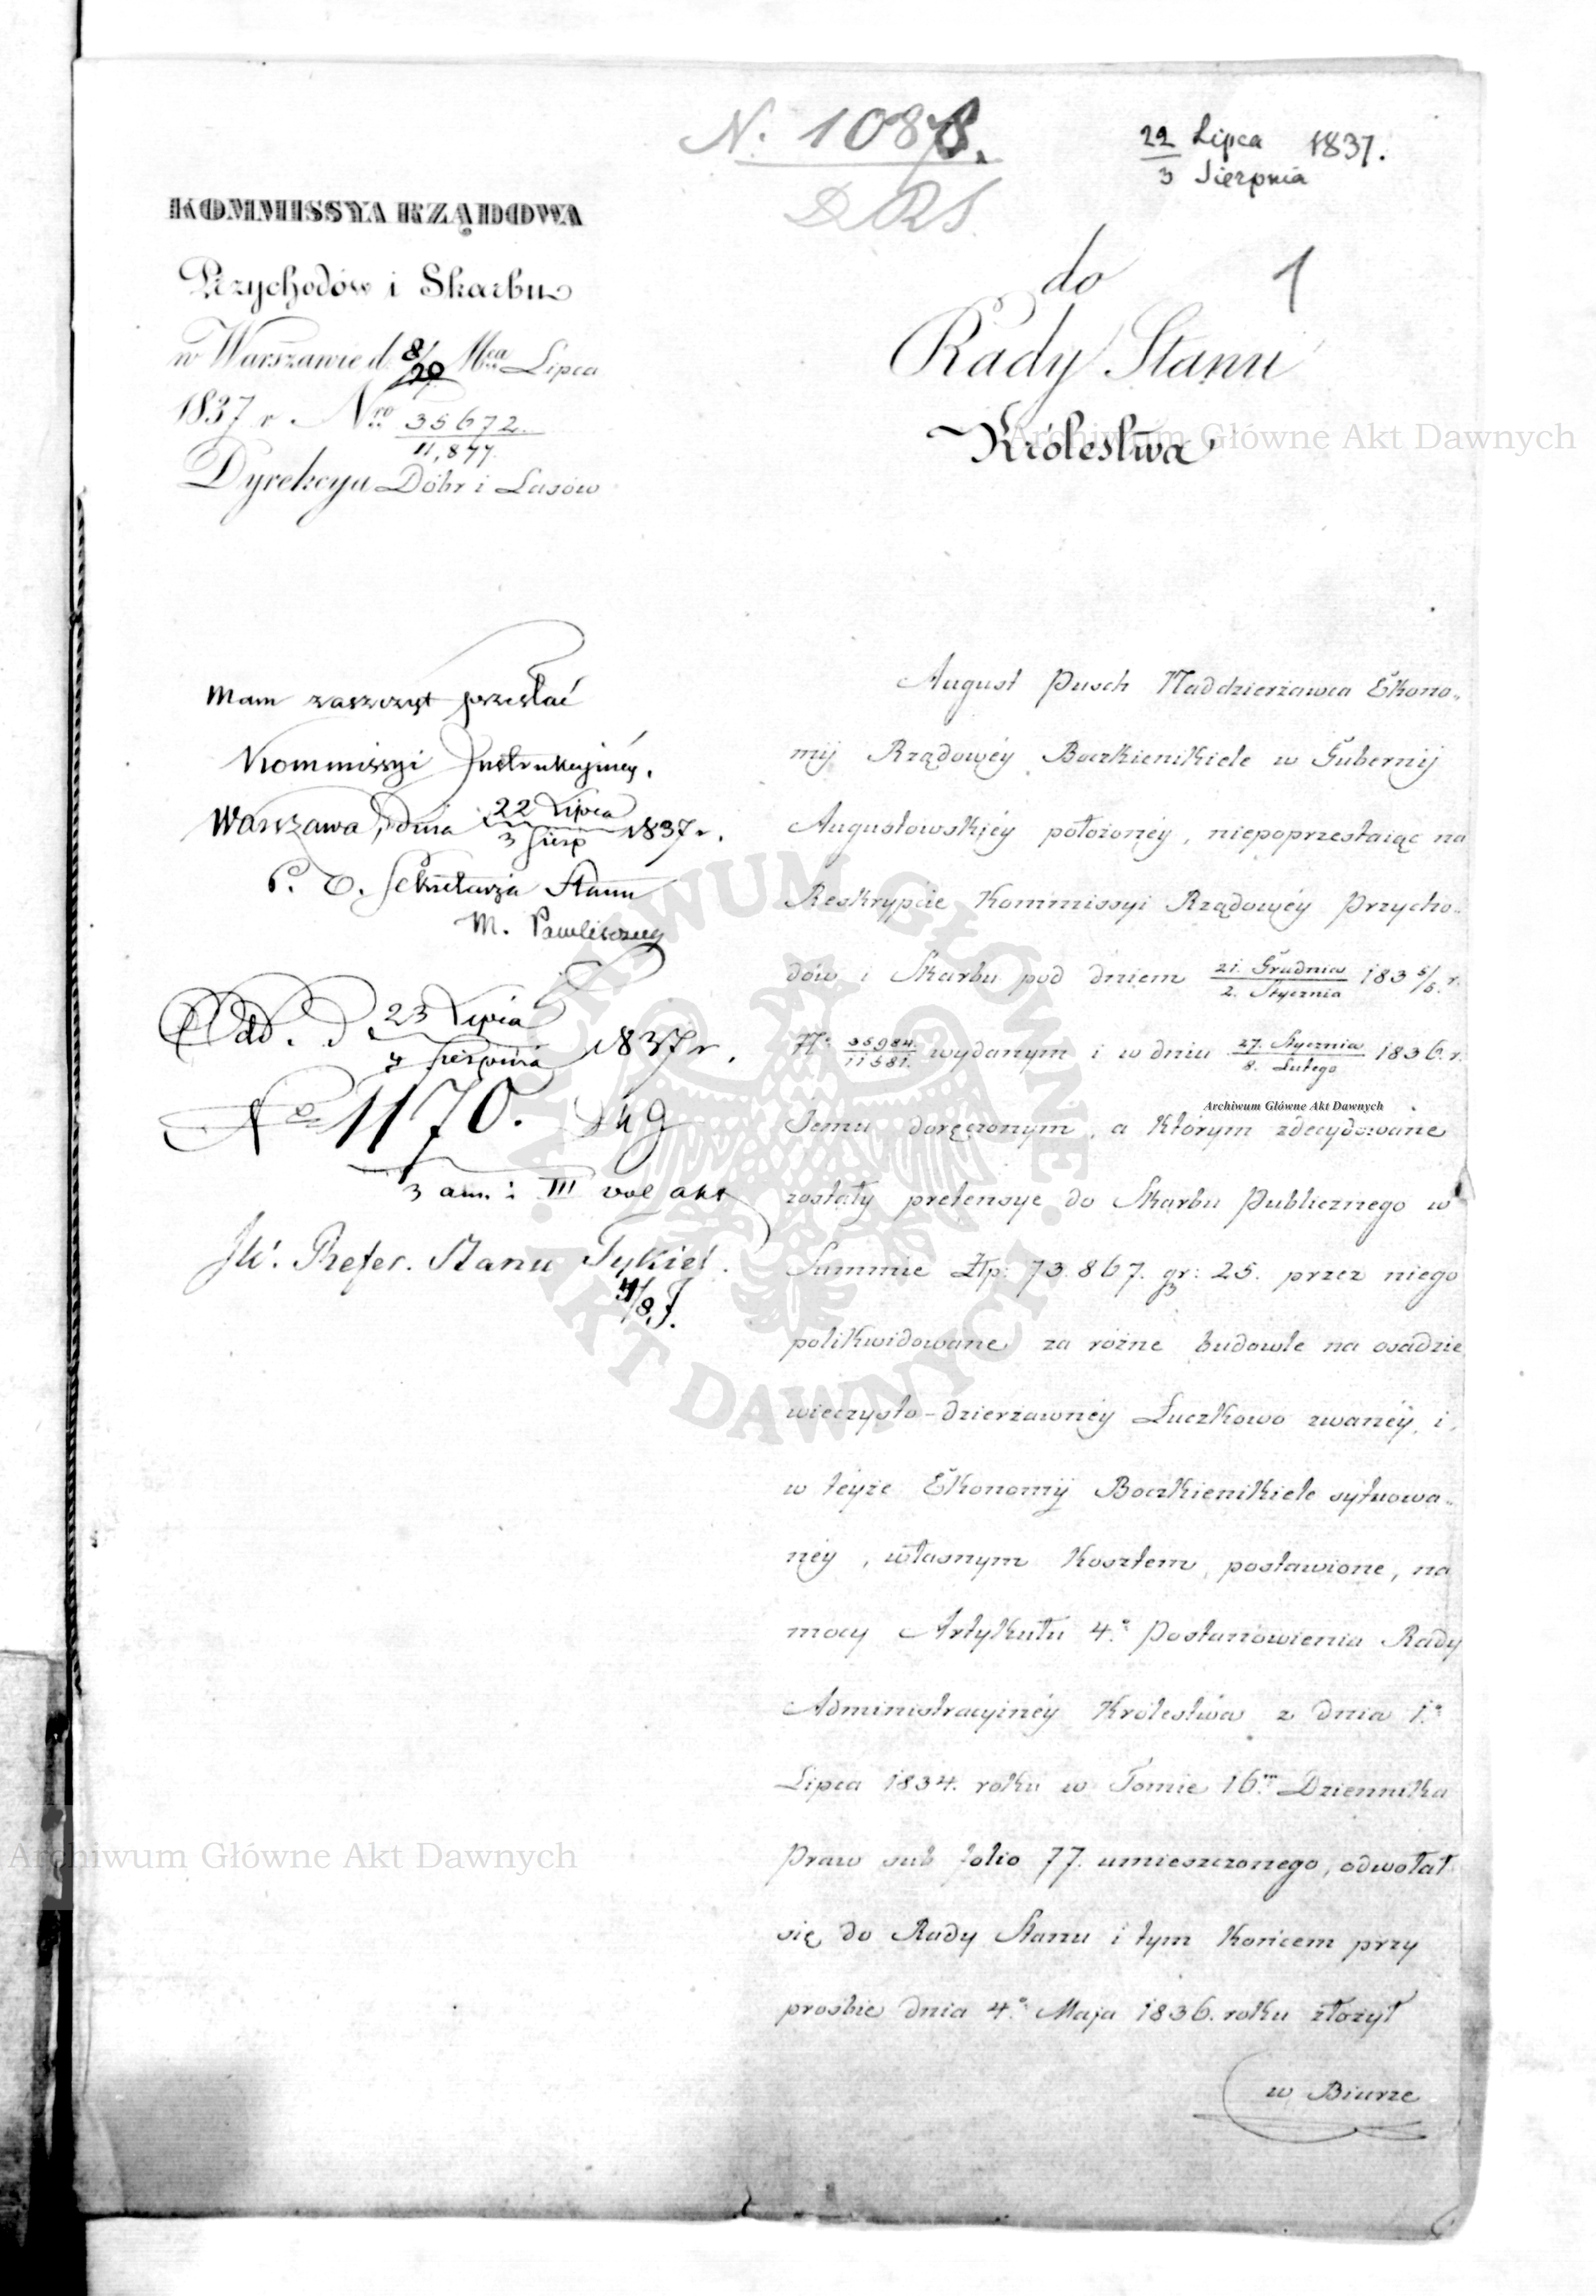 N. 1088.
D R S
22 Lipca 1837.
3 Sierpnia
1
KOMMISSYA RZĄDOWA
Przychodów i Skarbu
w Warszawie d. 8/20 Mca Lipca
1837 r. Nro 35672
11,877.
Dyrekcya Dóbr i Lasów
do
Rady Stanu
Królestwa
Mam zaszczyt przesłać
Kommissyi Instrukcyinéy.
Warszawa, dnia 22 Lipca / 3 Sierp 1837 r.
P. O. Sekretarza Stanu
M. Pawliszczew
Odd. d 23 Lipca / 4 Sierpnia 1837 r.
No 1170.
3 an. i III vol akt
JW. Refer. Stanu Tykiel.
4/8 J.
August Pusch Naddzierżawca Ekono-
mij Rządowéy Boczkienikiele w Gubernij
Augustowskiéy położonéy, niepoprzestaiąc na
Reskrypcie Kommissyi Rządowéy Przycho-
dów i Skarbu pod dniem 21. Grudnia / 2. Stycznia 183 5/6. r.
No 35984. / 11581. wydanym i w dniu 27. Stycznia / 8. Lutego 1836. r.
Jemu doręczonym, a którym zdecydowane
zostały pretensye do Skarbu Publicznego w
Summie Złp: 73.867. gr: 25. przez niego
polikwidowane za różne budowle na osadzie
wieczysto-dzierżawnéy Luczkowo zwanéy, i
w téyże Ekonomij Boczkienikiele sytuowa-
néy, własnym kosztem postawione, na
mocy Artykułu 4.o Postanowienia Rady
Administracyinéy Królestwa z dnia 1.o
Lipca 1834. roku w Tomie 16.m Dziennika
Praw sub folio 77. umieszczonego, odwołał
się do Rady Stanu i tym końcem przy
prośbie dnia 4.o Maja 1836. roku złożył
w Biurze
Archiwum Główne Akt Dawnych
Archiwum Główne Akt Dawnych
Archiwum Główne Akt Dawnych
ARCHIWUM GŁÓWNE · AKT DAWNYCH ·